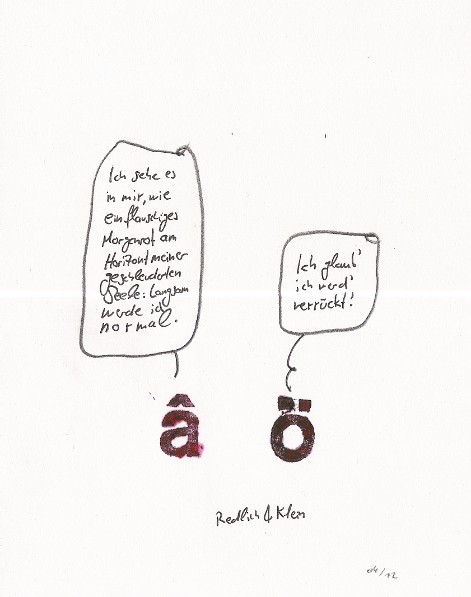 Ich sehe es
in mir, wie
ein flauschiges
Morgenrot am
Horizont meiner
geschleuderten
Seele: Langsam
werde ich
normal.
Ich glaub'
ich werd'
verrückt!
â ö
Redlich & Klein
04/12